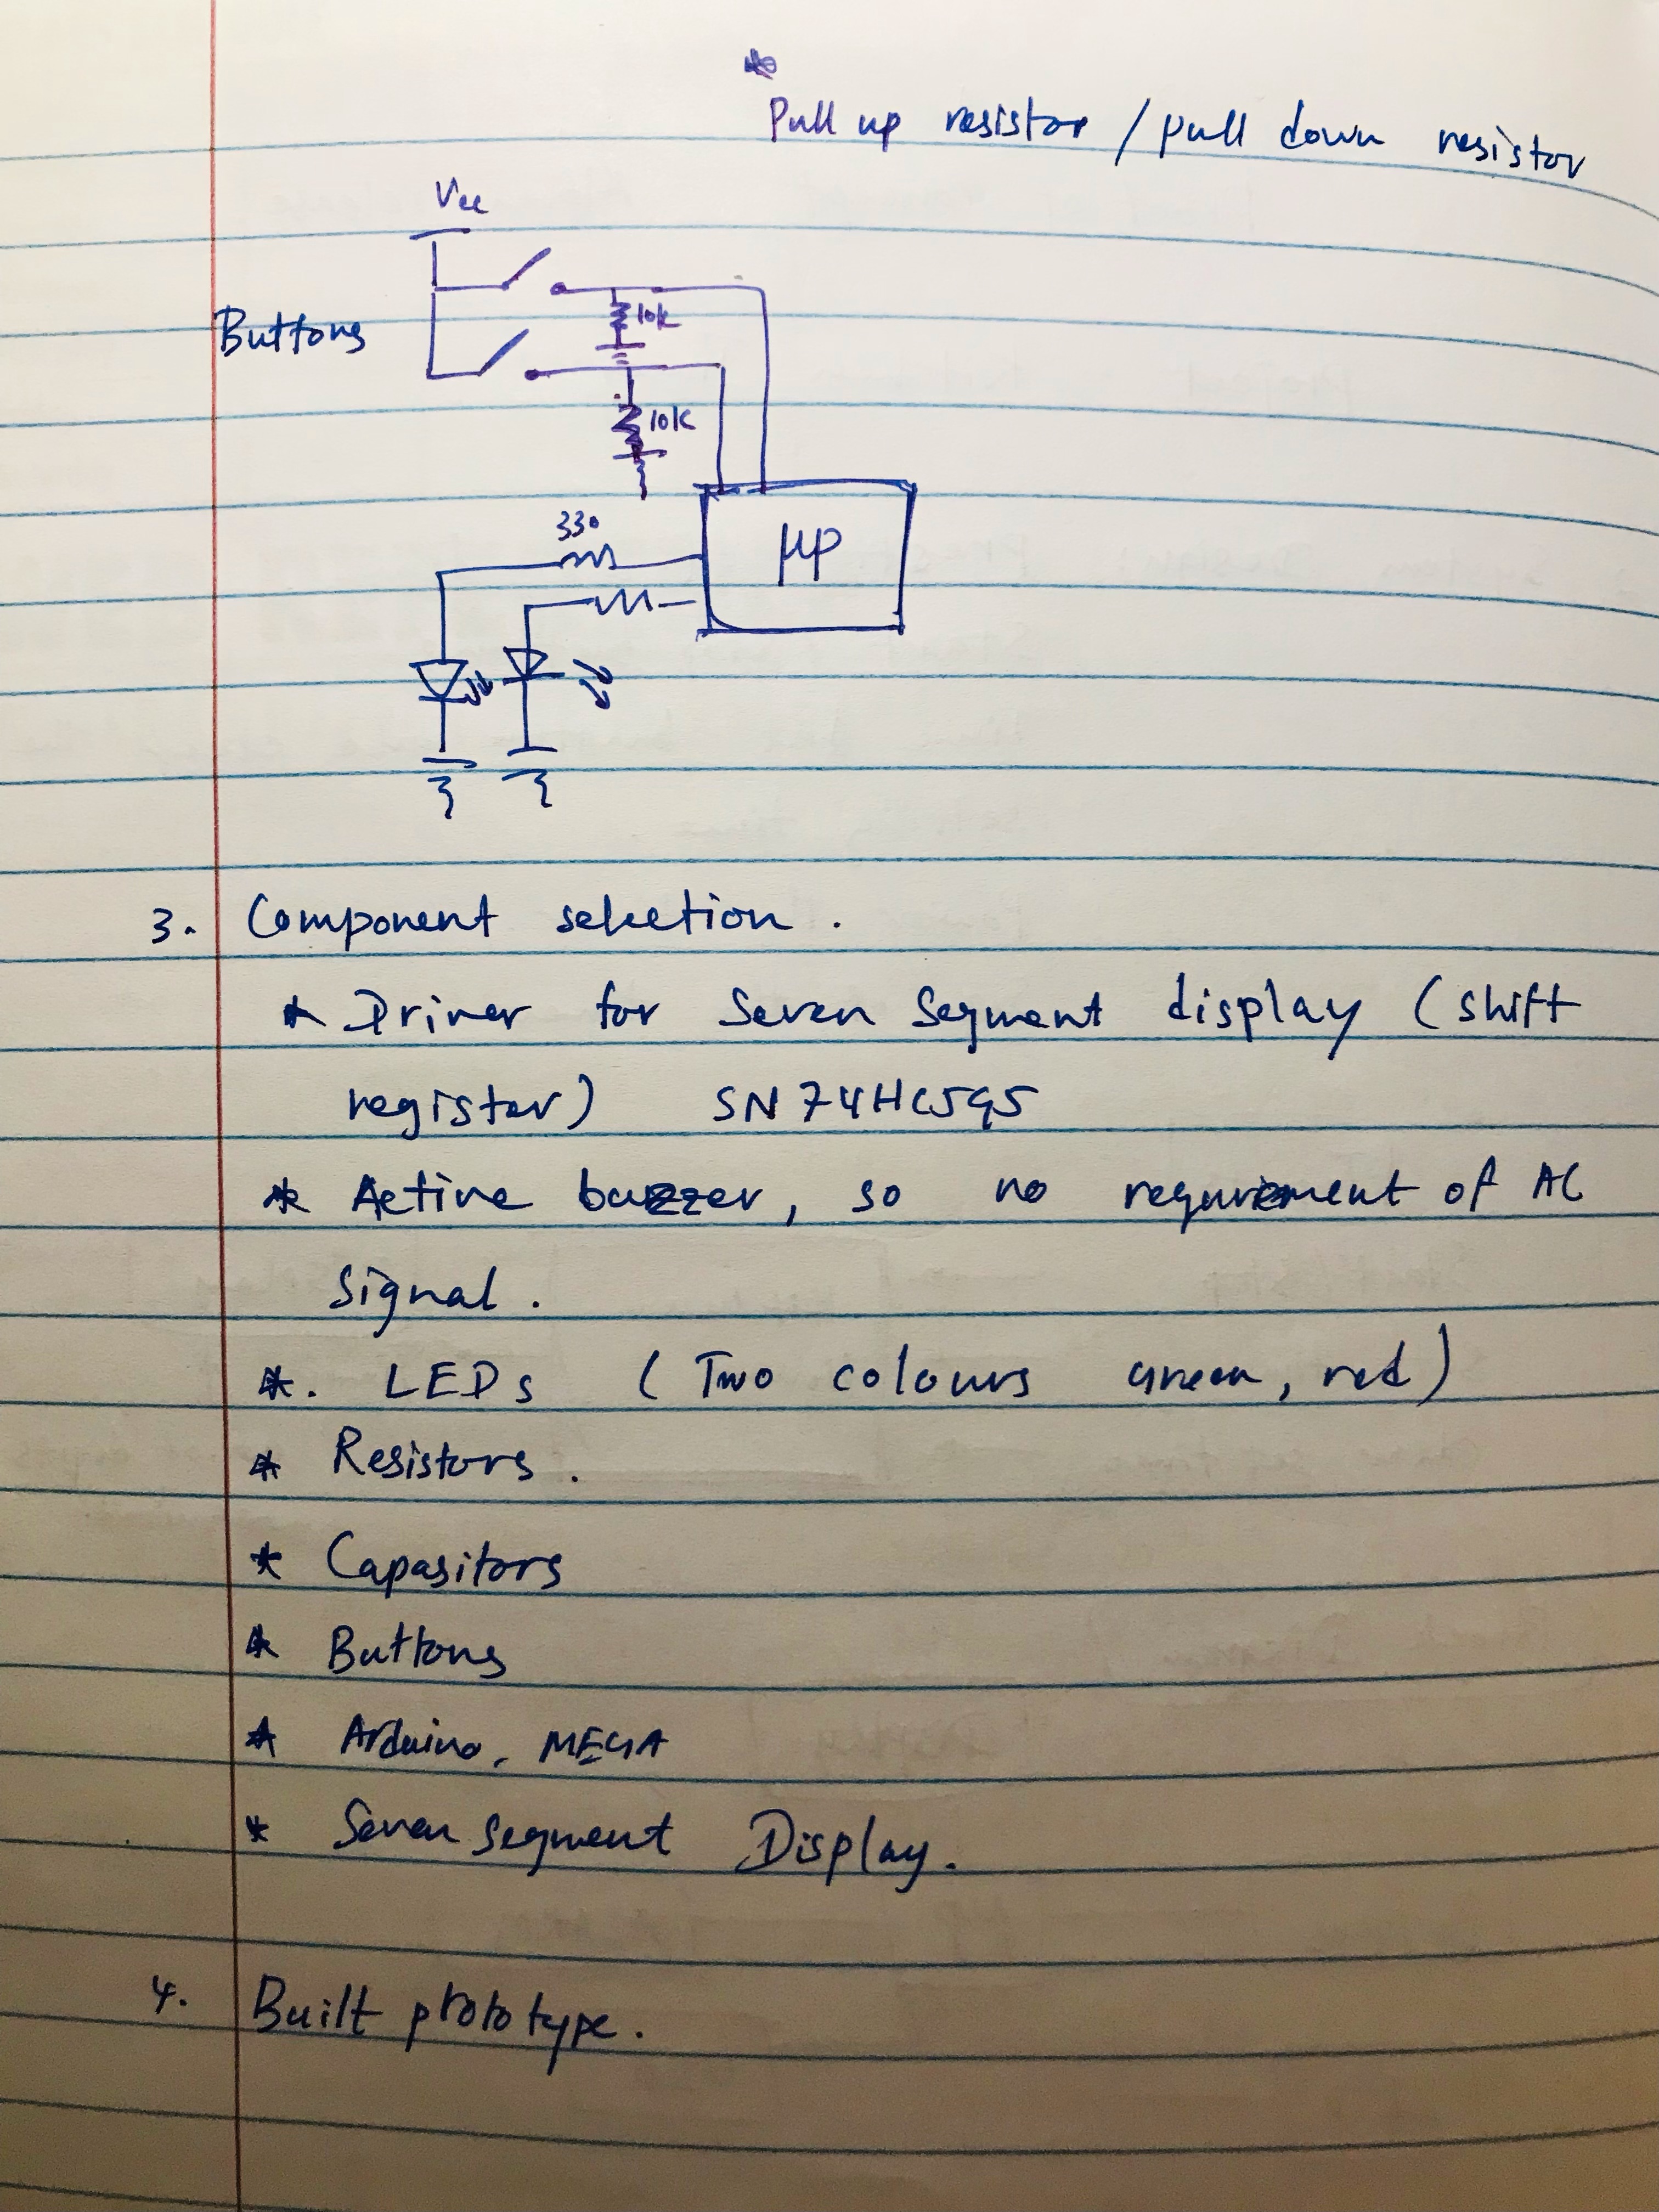 Pull up resistor / pull down resistor
Vcc
Buttons
10k
10k
330
μp
3. Component selection.
* Driver for Seven Segment display (shift
register) SN74HC595
* Active buzzer, so no requirement of AC
signal.
*. LEDs (Two colours green, red)
* Resistors.
* Capasitors
* Buttons
* Arduino, MEGA
* Seven segment Display.
4. Built prototype.